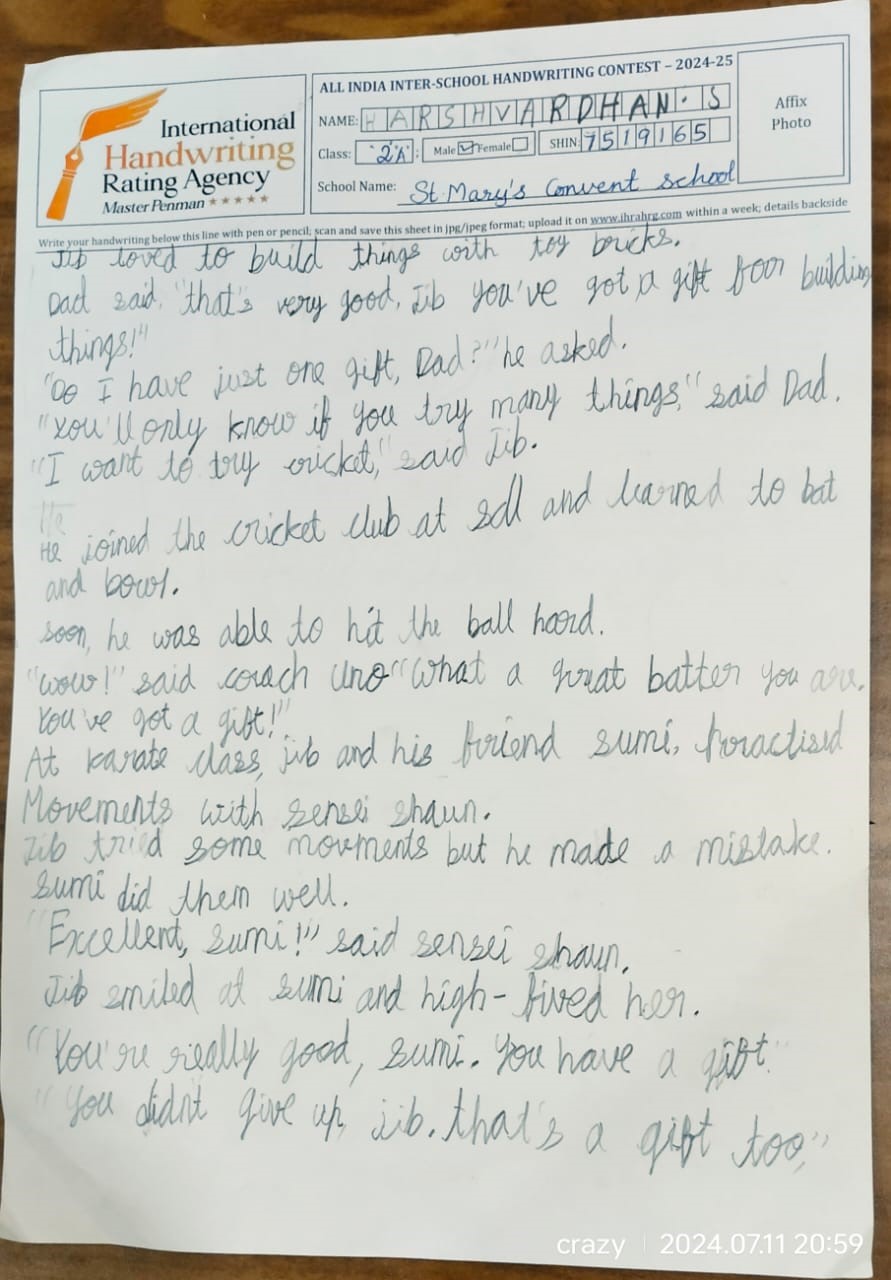 International
Handwriting
Rating Agency
Master Penman ★★★★★
ALL INDIA INTER-SCHOOL HANDWRITING CONTEST – 2024-25
NAME: HARSHVARDHAN. S
Class: "2A": Male ☑ Female ☐ SHIN: 7519165
School Name: St. Mary's Convent school
Affix
Photo
Write your handwriting below this line with pen or pencil; scan and save this sheet in jpg/jpeg format; upload it on www.ihrahrg.com within a week; details backside
Jib loved to build things with toy bricks.
Dad said, "that's very good, Jib you've got a gift foor building
things!"
"Do I have just one gift, Dad?" he asked.
"You'll only know if you try many things," said Dad.
"I want to try cricket," said Jib.
He
He joined the cricket club at and learned to bat
and bowl.
soon, he was able to hit the ball hard.
"wow!" said coach Uno "What a great batter you are.
You've got a gift!"
At karate class, jib and his friend sumi, practised
Movements with sensei shaun.
Jib tried some movments but he made a mistake.
sumi did them well.
"Excellent, sumi!" said sensei shaun.
Jib smiled at sumi and high-fived her.
"You're really good, sumi. You have a gift."
"You didn't give up, jib. that's a gift too,"
crazy | 2024.07.11 20:59